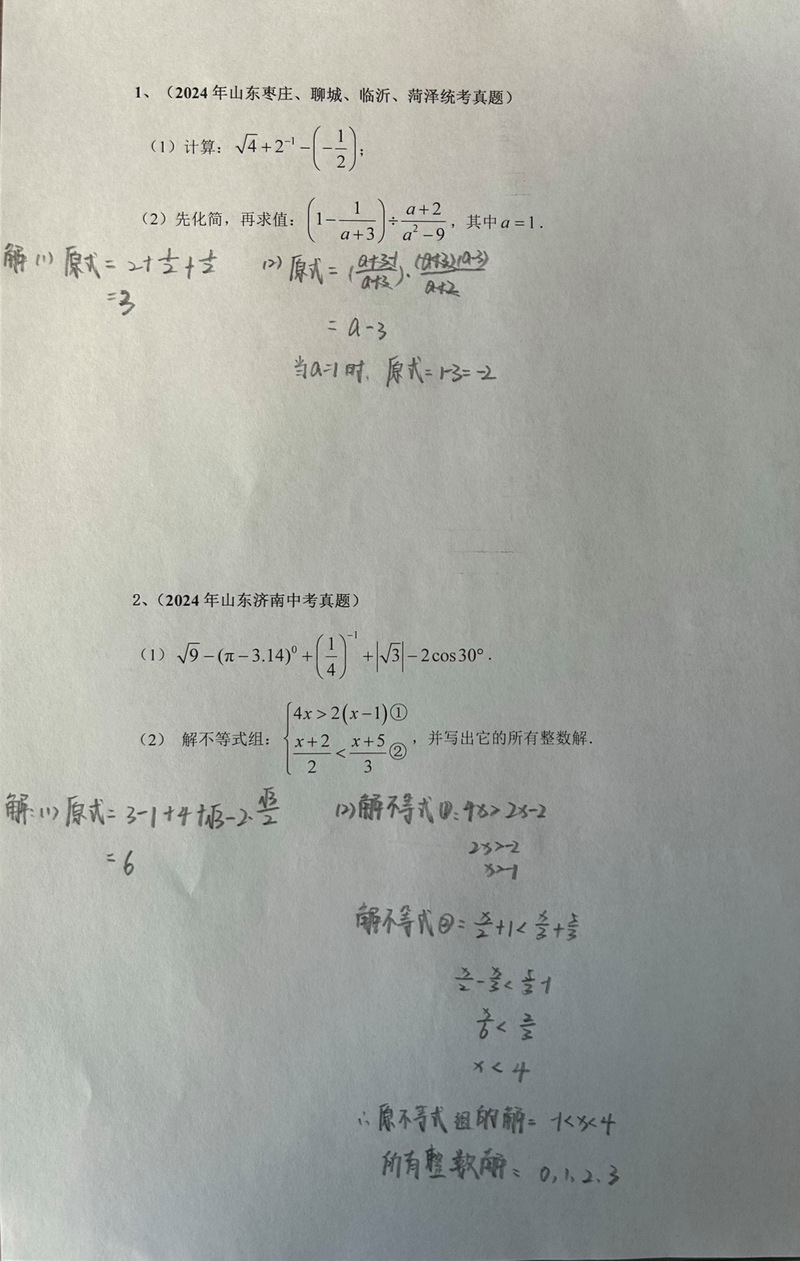 1、（2024 年山东枣庄、聊城、临沂、菏泽统考真题）
（1）计算：√4+2⁻¹−(−1/2)；
（2）先化简，再求值：(1−1/(a+3))÷(a+2)/(a²−9)，其中a=1．
解(1) 原式=2+1/2+1/2
=3
(2) 原式=((a+3-1)/(a+3))·((a+3)(a-3))/(a+2)
=a-3
当a=1时, 原式=1-3=-2
2、（2024 年山东济南中考真题）
（1）√9−(π−3.14)⁰+(1/4)⁻¹+|√3|−2cos30°．
（2） 解不等式组：{4x>2(x−1)① (x+2)/2<(x+5)/3②，并写出它的所有整数解．
解:(1) 原式=3-1+4+√3-2·√3/2
=6
(2)解不等式①:4x>2x-2
2x>-2
x>-1
解不等式②=x/2+1<x/3+5/3
x/2-x/3<5/3-1
x/6<2/3
x<4
∴原不等式组的解=-1<x<4
所有整数解=0,1、2、3